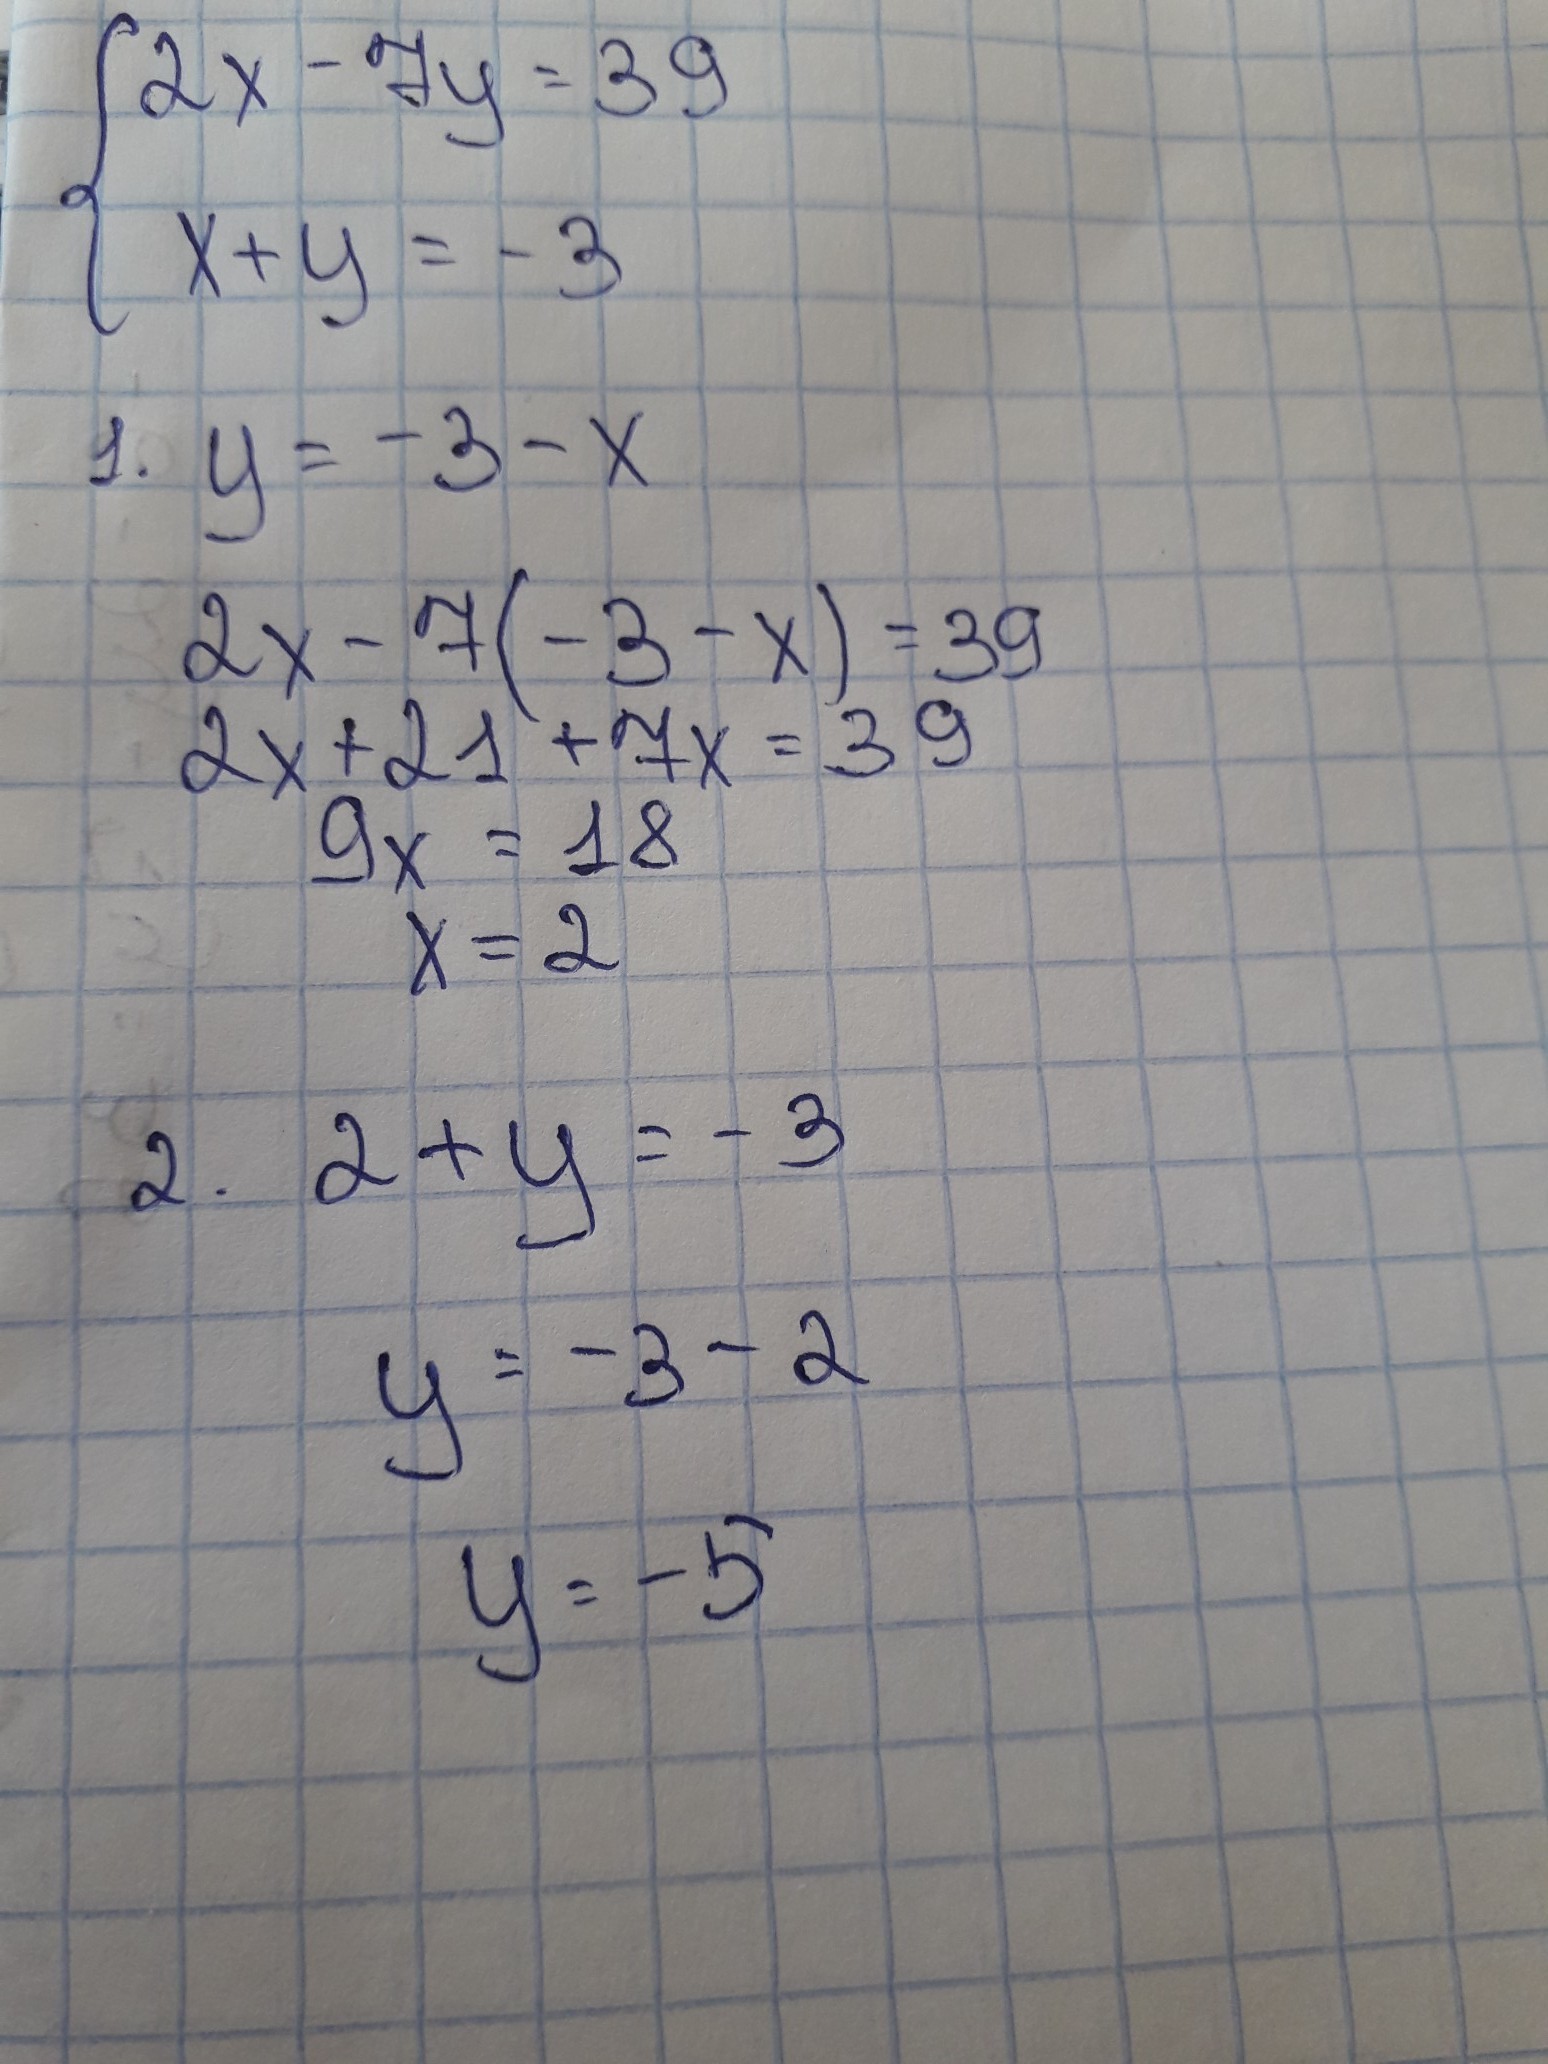 2x - 7y = 39
x + y = -3
1. y = -3 - x
2x - 7(-3 - x) = 39
2x + 21 + 7x = 39
9x = 18
x = 2
2. 2 + y = -3
y = -3 - 2
y = -5